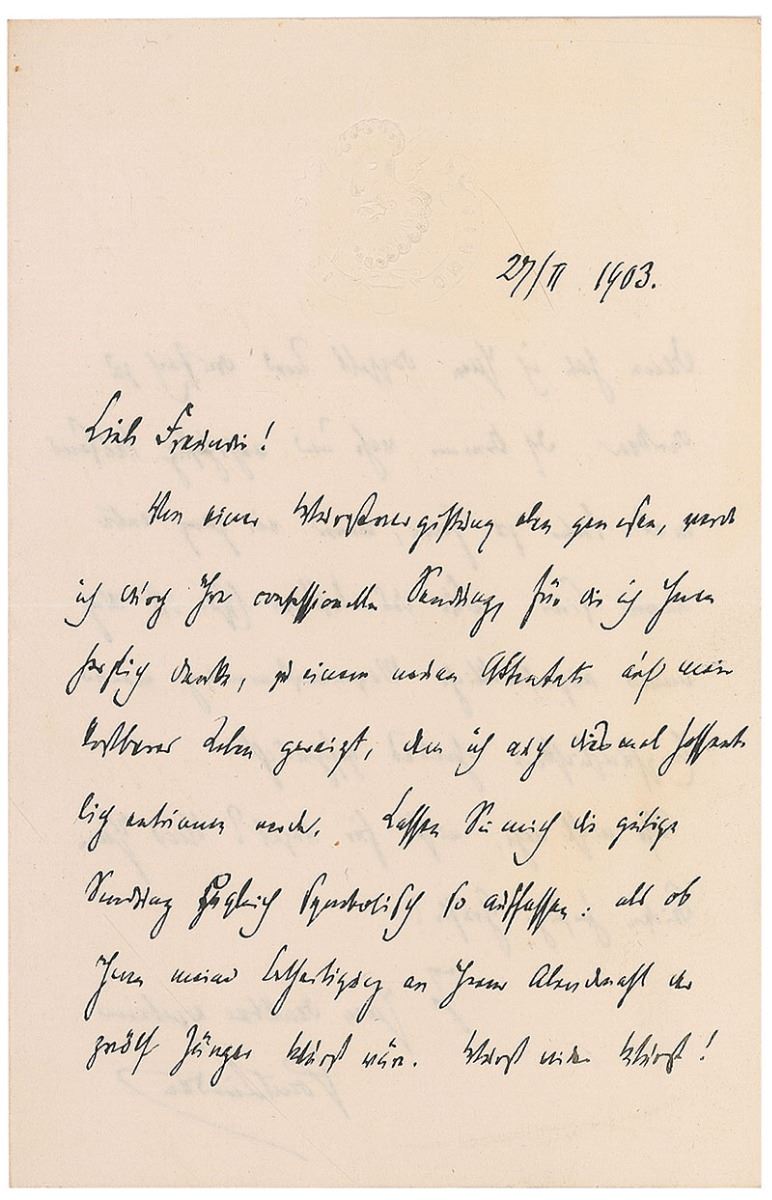 27/II 1903.
Liebe Freundin!
Von einer Wurstvergiftung eben genesen, werde
ich durch Ihre confessionelle Sendung, für die ich Ihnen
herzlich danke, zu einem neuen Attentate auf mein
kostbares Leben gereizt, dem ich auch diesmal hoffent-
lich entrinnen werde. Lassen Sie mich die gütige
Sendung zugleich symbolisch so auffassen: als ob
Ihnen meine Betheiligung an Ihrem Abendmahl der
zwölf Jünger Wurst wäre. Wurst wider Wurst!